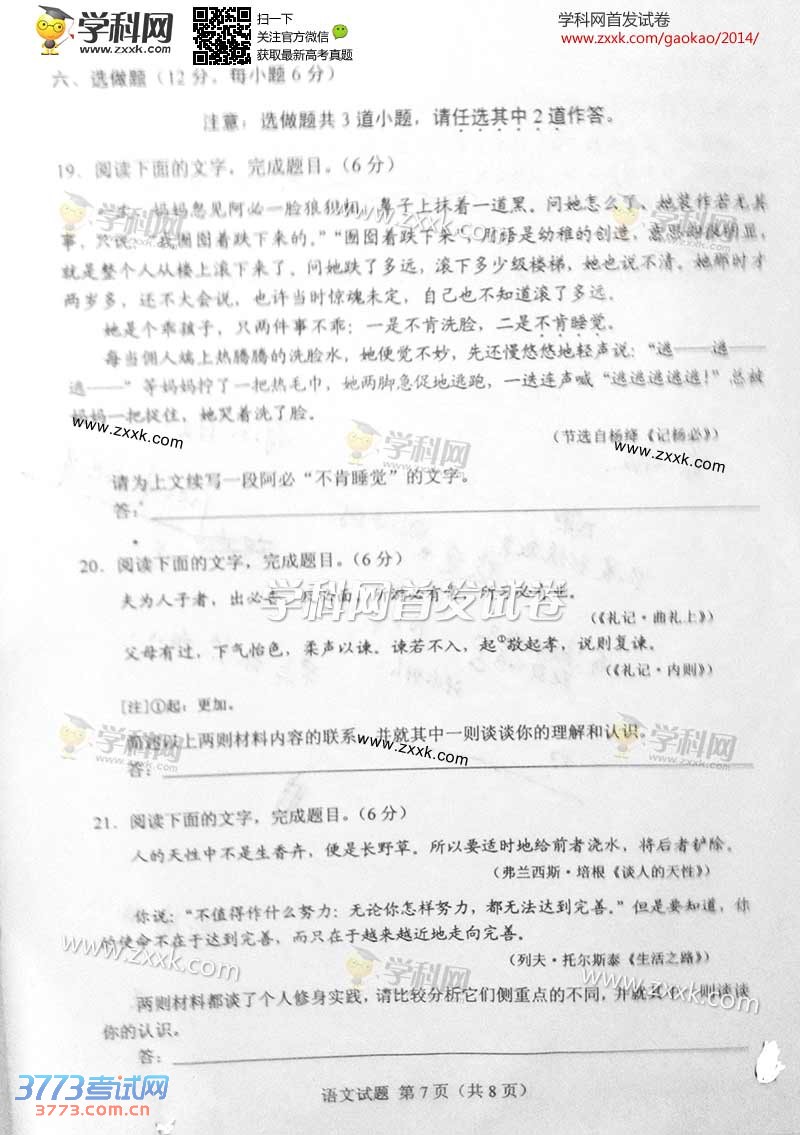 学科网
www.zxxk.com
扫一下
关注官方微信
获取最新高考真题
学科网首发试卷
www.zxxk.com/gaokao/2014/
六、选做题（12分，每小题6分）
注意：选做题共3道小题，请任选其中2道作答。
19．阅读下面的文字，完成题目。（6分）
妈妈忽见阿必一脸狼狈相，鼻子上抹着一道黑。问她怎么了，她装作若无其
事，只说：“我囫囵着跌下来的。”“囫囵着跌下来”，用语是幼稚的创造，意思却很明显，
就是整个人从楼上滚下来了。问她跌了多远，滚下多少级楼梯，她也说不清。她那时才
两岁多，还不大会说，也许当时惊魂未定，自己也不知道滚了多远。
她是个乖孩子，只两件事不乖：一是不肯洗脸，二是不肯睡觉。
每当佣人端上热腾腾的洗脸水，她便觉不妙，先还慢悠悠地轻声说：“逃——逃——
逃——”等妈妈拧了一把热毛巾，她两脚急促地逃跑，一迭连声喊“逃逃逃逃逃！”总被
妈妈一把捉住，她哭着洗了脸。
（节选自杨绛《记杨必》）
请为上文续写一段阿必“不肯睡觉”的文字。
答：
20．阅读下面的文字，完成题目。（6分）
夫为人子者，出必告，反必面，所游必有常，所习必有业。
（《礼记·曲礼上》）
父母有过，下气怡色，柔声以谏。谏若不入，起①敬起孝，说则复谏。
（《礼记·内则》）
[注]①起：更加。
简述以上两则材料内容的联系，并就其中一则谈谈你的理解和认识。
答：
21．阅读下面的文字，完成题目。（6分）
人的天性中不是生香卉，便是长野草。所以要适时地给前者浇水，将后者铲除。
（弗兰西斯·培根《谈人的天性》）
你说：“不值得作什么努力：无论你怎样努力，都无法达到完善。”但是要知道，你
的使命不在于达到完善，而只在于越来越近地走向完善。
（列夫·托尔斯泰《生活之路》）
两则材料都谈了个人修身实践，请比较分析它们侧重点的不同，并就其中一则谈谈
你的认识。
答：
语文试题 第7页（共8页）
3773考试网
www.3773.com.cn